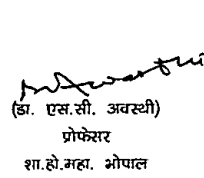 (डा. एस.सी. अवस्थी)
प्रोफेसर
शा.हो.महा. भोपाल